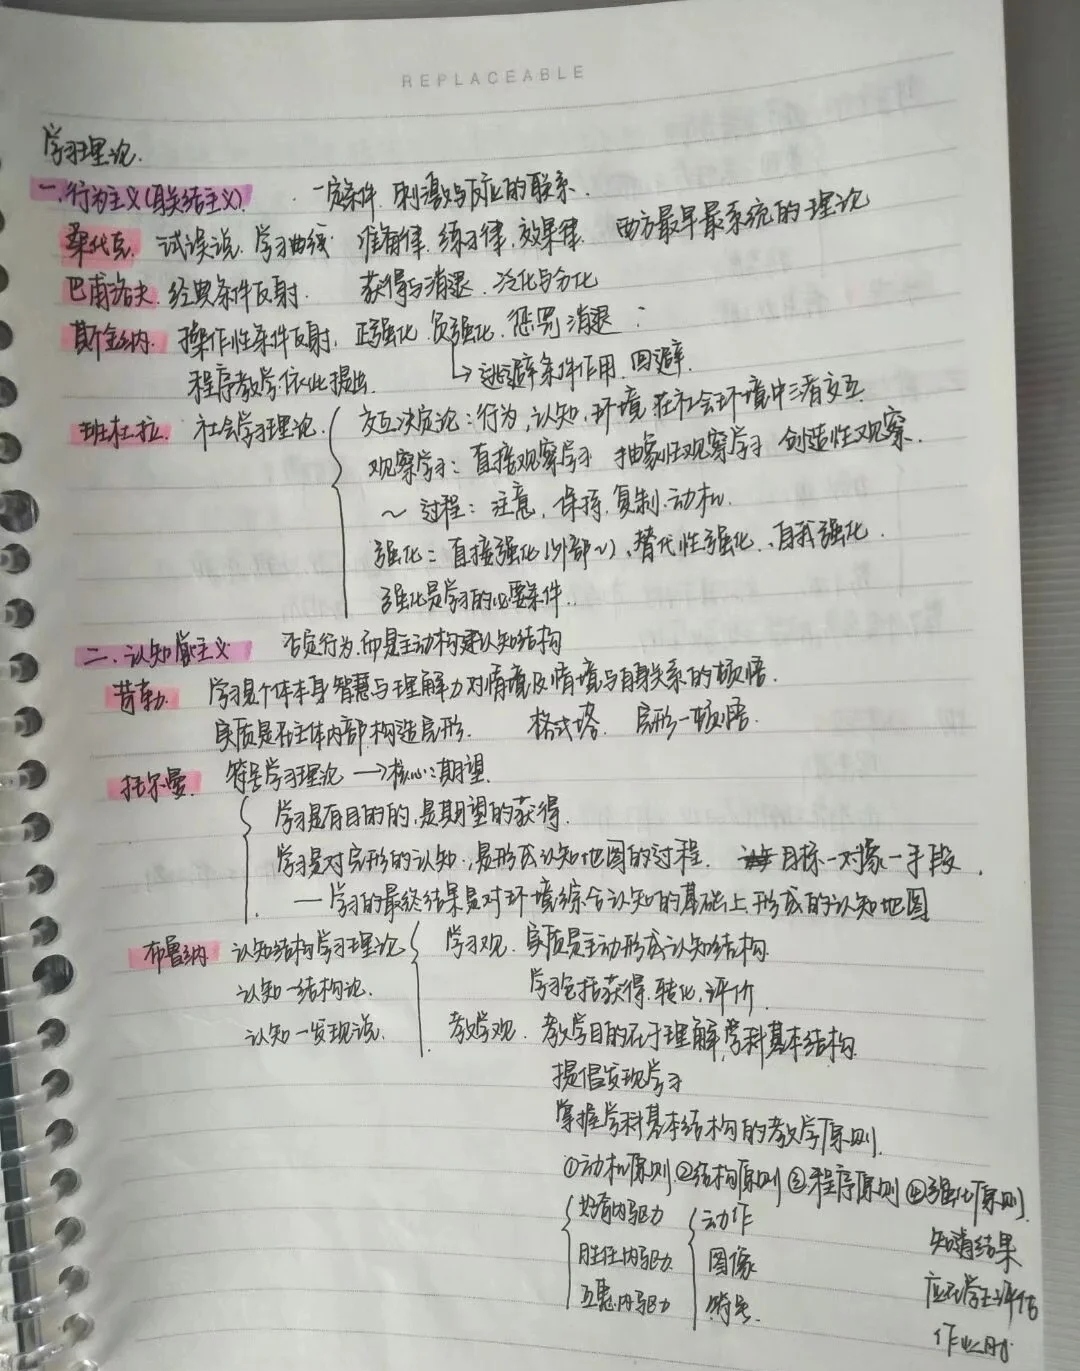 REPLACEABLE
学习理论.
一.行为主义(联结主义). 一定条件.刺激与反应的联系.
桑代克. 试误说.学习曲线 准备律.练习律.效果律. 西方最早最系统的理论
巴甫洛夫.经典条件反射. 获得与消退.泛化与分化
斯金纳. 操作性条件反射. 正强化.负强化.惩罚.消退
程序教学依此提出. → 逃避条件作用.回避.
班杜拉. 社会学习理论. 交互决定论:行为,认知,环境 在社会环境中三者交互.
观察学习:直接观察学习 抽象性观察学习 创造性观察.
~过程:注意.保持.复制.动机.
强化:直接强化(外部~)、替代性强化、自我强化.
强化是学习的必要条件.
二.认知主义 否定行为.而是主动构建认知结构
苛勒. 学习是个体本身智慧与理解力对情境及情境与自身关系的顿悟.
实质是在主体内部构造完形. 格式塔. 完形—顿悟.
托尔曼. 符号学习理论→核心:期望.
学习是有目的的,是期望的获得.
学习是对完形的认知,是形成认知地图的过程. 目标—对象—手段.
—学习的最终结果是对环境综合认知的基础上形成的认知地图
布鲁纳. 认知结构学习理论 学习观.实质是主动形成认知结构.
认知—结构论. 学习包括获得.转化.评价.
认知—发现说. 教学观.教学目的在于理解学科基本结构.
提倡发现学习
掌握学科基本结构的教学原则.
①动机原则②结构原则③程序原则④强化原则.
好奇内驱力 动作 知道结果
胜任内驱力 图像 应在学生评估
互惠内驱力 符号. 作业时